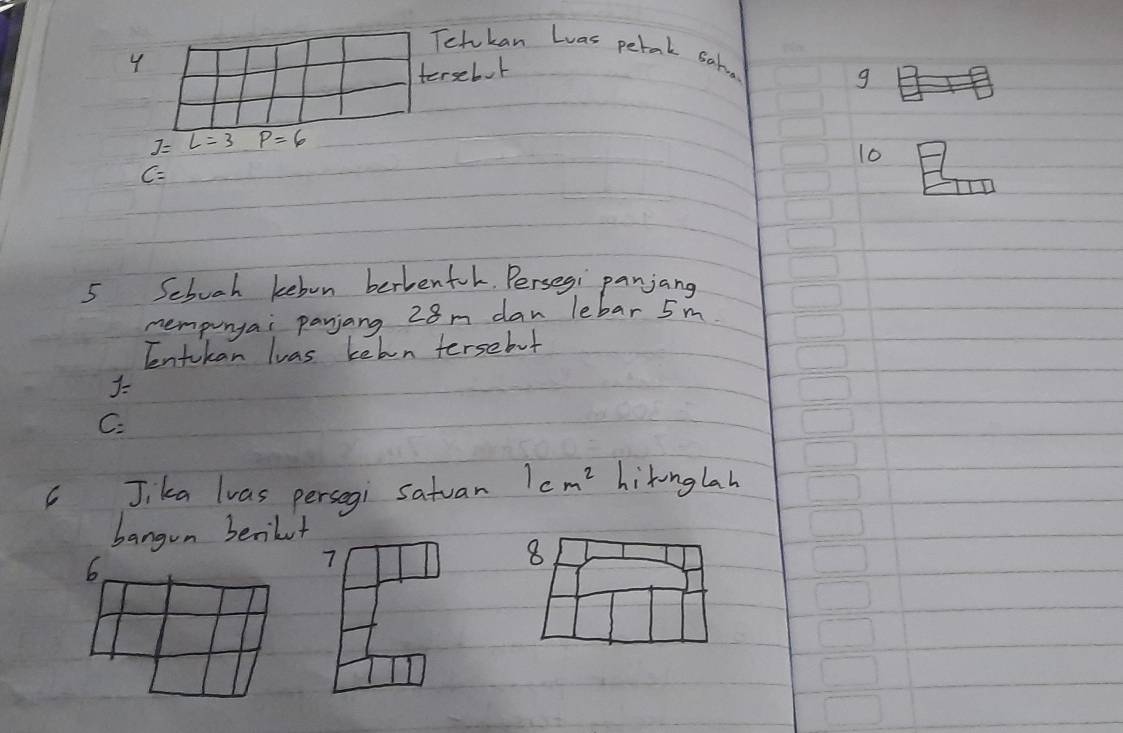 4 Tetukan Luas petak satuan
tersebut
J= L=3 P=6
C=
5 Sebuah kebun berbentuk. Persegi panjang
mempunyai panjang 28m dan lebar 5m.
Tentukan luas kebun tersebut
J=
C:
6 Jika luas persegi satuan 1cm² hitunglah
bangun berikut
6 7 8
9
10